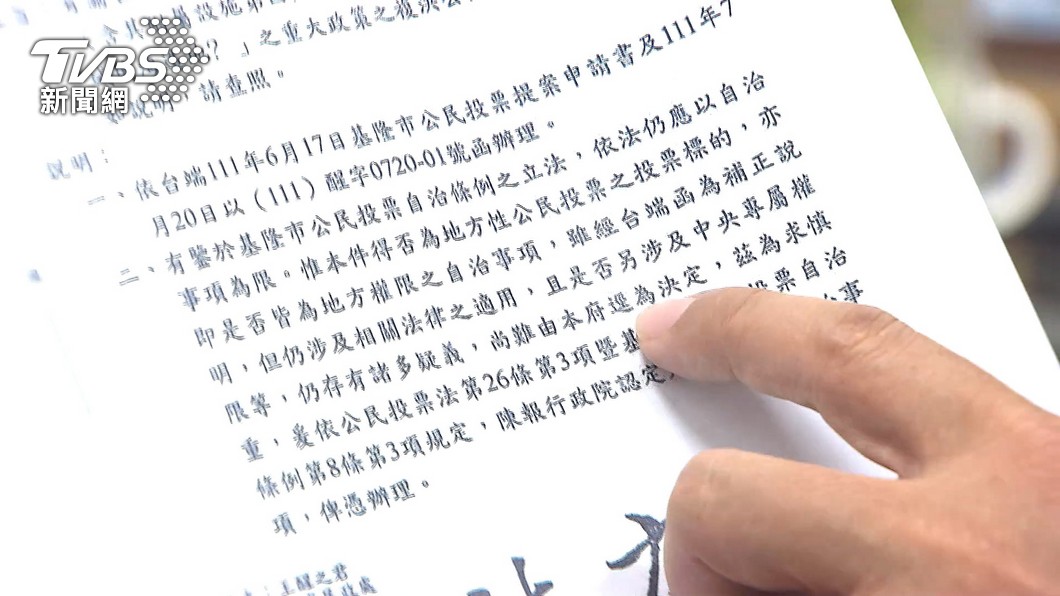 TVBS
新聞網
之重大政策之複決公
請查照。
說明：
一、依台端111年6月17日基隆市公民投票提案申請書及111年7
月20日以（111）醒字0720-01號函辦理。
二、有鑒於基隆市公民投票自治條例之立法，依法仍應以自治
事項為限。惟本件得否為地方性公民投票之投票標的，亦
即是否皆為地方權限之自治事項，雖經台端函為補正說
明，但仍涉及相關法律之適用，且是否另涉及中央專屬權
限等，仍存有諸多疑義，尚難由本府逕為決定，茲為求慎
重，爰依公民投票法第26條第3項暨基 投票自治
條例第8條第3項規定，陳報行政院認定 事
項，俾憑辦理。
王醒之君